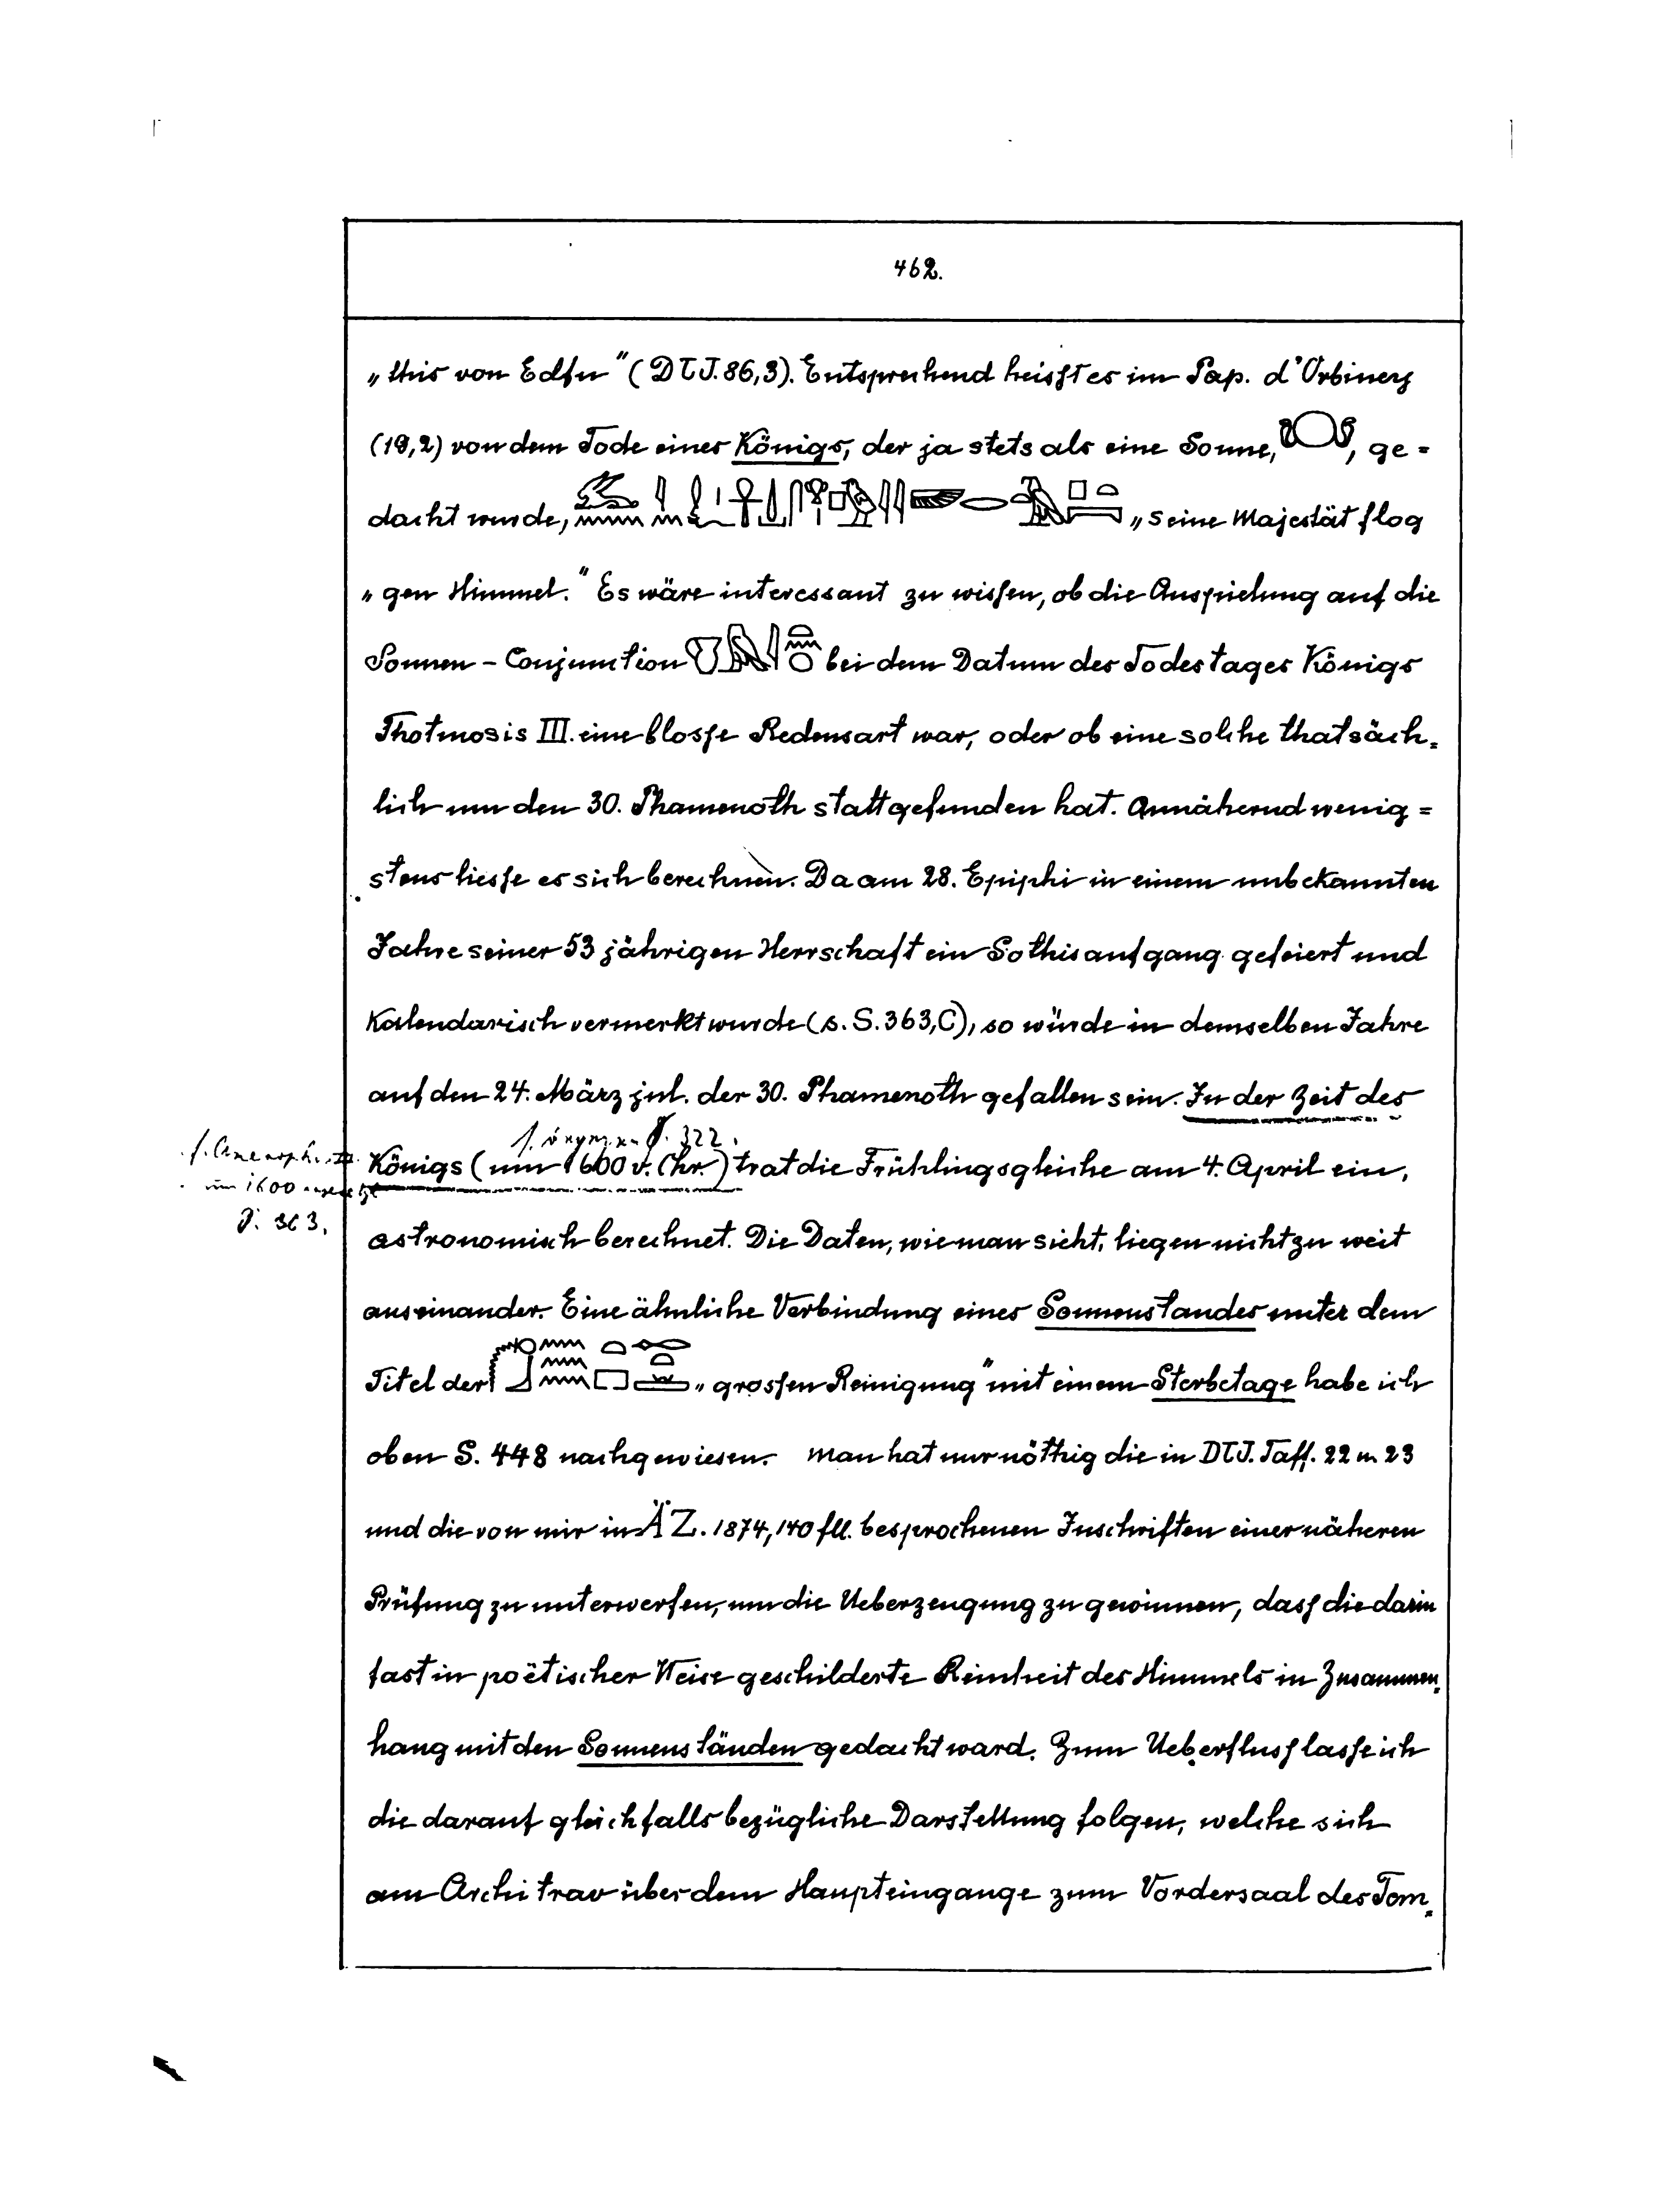 462.
„this von Edfu“ (DTJ. 86,3). Entsprechend heisst es im Pap. d'Orbiney
(19,2) von dem Tode eines Königs, der ja stets als eine Sonne, , ge=
dacht wurde, „seine Majestät flog
„gen Himmel.“ Es wäre interessant zu wissen, ob die Anspielung auf die
Sonnen-Conjunction bei dem Datum des Todestages Königs
Thotmosis III. eine blosse Redensart war, oder ob eine solche thatsäch=
lich um den 30. Phamenoth stattgefunden hat. Annähernd wenig=
stens liesse es sich berechnen. Da am 28. Epiphi in einem unbekannten
Jahre seiner 53 jährigen Herrschaft ein Sothisaufgang gefeiert und
Kalendarisch vermerkt wurde (s. S. 363, C), so würde in demselben Jahre
auf den 24. März jul. der 30. Phamenoth gefallen sein. In der Zeit des
S. 322.
Königs (um 1600 v. Chr.) trat die Frühlingsgleiche am 4. April ein,
um 1600
S. 363.
astronomisch berechnet. Die Daten, wie man sieht, liegen nicht zu weit
auseinander. Eine ähnliche Verbindung eines Sonnenstandes unter dem
Titel der „grossen Reinigung“ mit einem Sterbetage habe ich
oben S. 448 nachgewiesen. Man hat nur nöthig die in DTJ. Taff. 22 u. 23
und die von mir in ÄZ. 1874, 140 fll. besprochenen Inschriften einer näheren
Prüfung zu unterwerfen, um die Ueberzeugung zu gewinnen, dass die darin
fast in poëtischer Weise geschilderte Reinheit des Himmels in Zusammen=
hang mit den Sonnenständen gedacht ward. Zum Ueberfluss lasse ich
die darauf gleichfalls bezügliche Darstellung folgen, welche sich
am Architrav über dem Haupteingange zum Vordersaal des Tem=